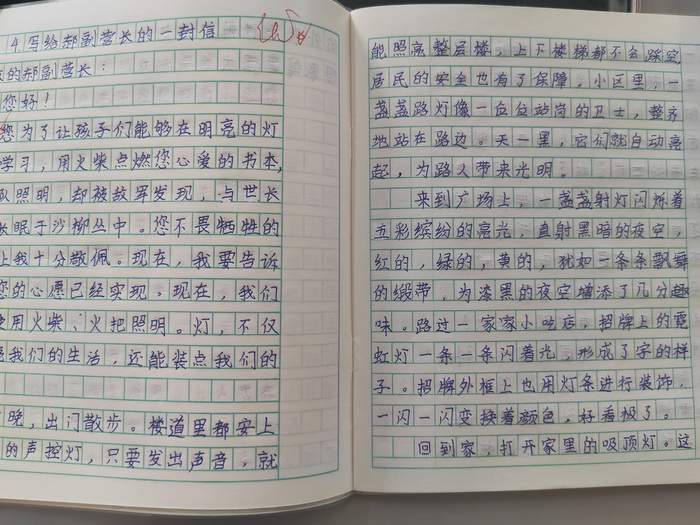 4.写给郝副营长的一封信
的郝副营长：
您好！
您为了让孩子们能够在明亮的灯
学习，用火柴点燃您心爱的书本，
队照明，却被敌军发现，与世长
眠于沙柳丛中。您不畏牺牲的
我十分敬佩。现在，我要告诉
您的心愿已经实现。现在，我们
使用火柴、火把照明。灯，不仅
我们的生活，还能装点我们的
晚，出门散步。楼道里都安上
的声控灯，只要发出声音，就
能照亮整层楼，上下楼梯都不会踩空，
居民的安全也有了保障。小区里，一
盏盏路灯像一位位站岗的卫士，整齐
地站在路边。天一黑，它们就自动亮
起，为路人带来光明。
来到广场上，一盏盏射灯闪烁着
五彩缤纷的亮光，直射黑暗的夜空，
红的，绿的，黄的，犹如一条条飘舞
的缎带，为漆黑的夜空增添了几分趣
味。路过一家家小吃店，招牌上的霓
虹灯一条一条闪着光，形成了字的样
子。招牌外框上也用灯条进行装饰，
一闪一闪变换着颜色，好看极了。
回到家，打开家里的吸顶灯。这